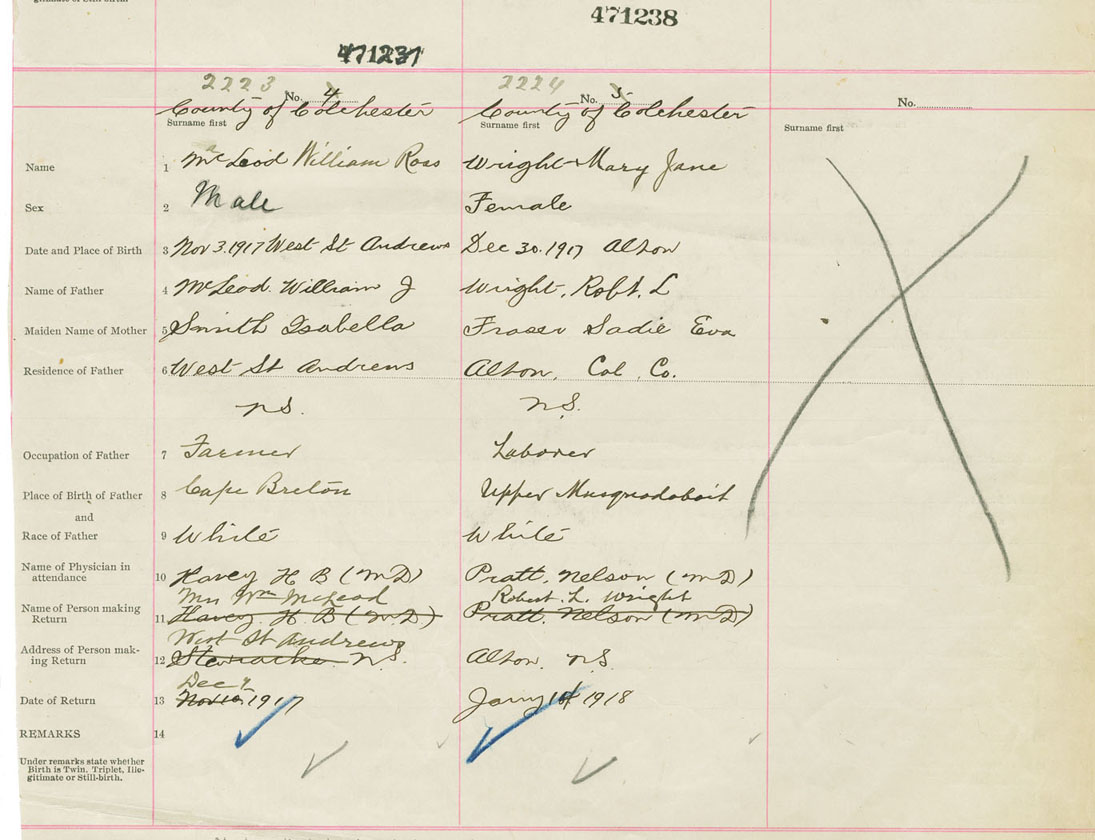 471238
471237
2223
2224
No. 4
No. 5
No.
County of Colchester
County of Colchester
Surname first
Surname first
Surname first
Name 1 McLeod William Ross Wright Mary Jane
Sex 2 Male Female
Date and Place of Birth 3 Nov 3. 1917 West St Andrews Dec 30. 1917 Alton
Name of Father 4 McLeod. William J Wright, Robt. L
Maiden Name of Mother 5 Smith Isabella Fraser Sadie Eva
Residence of Father 6 West St Andrews Alton, Col. Co.
N.S. N.S.
Occupation of Father 7 Farmer Laborer
Place of Birth of Father 8 Cape Breton Upper Musquodoboit
and
Race of Father 9 White White
Name of Physician in
attendance 10 Havey H B (M D) Pratt, Nelson (M D)
Mrs Wm McLeod Robert. L. Wright
Name of Person making
Return 11 Havey. H. B (M. D) Pratt, Nelson (M D)
West St Andrews
Address of Person mak-
ing Return 12 Stewiacke N.S. Alton, N.S.
Dec 4
Date of Return 13 Nov 1917 Jany 1918
REMARKS 14
Under remarks state whether
Birth is Twin, Triplet, Ille-
gitimate or Still-birth.